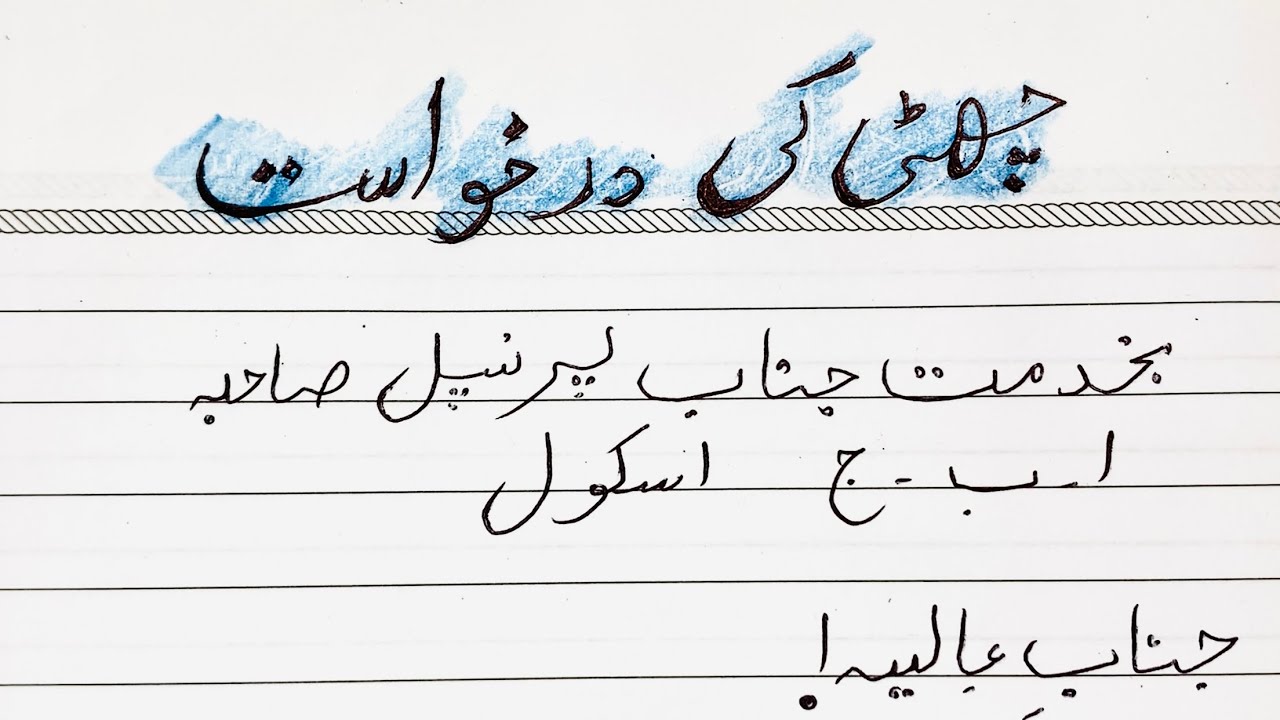 چھٹی کی درخواست
بخدمت جناب پرنسپل صاحبہ
ا۔ ب۔ ج اسکول
جنابِ عالیہ!